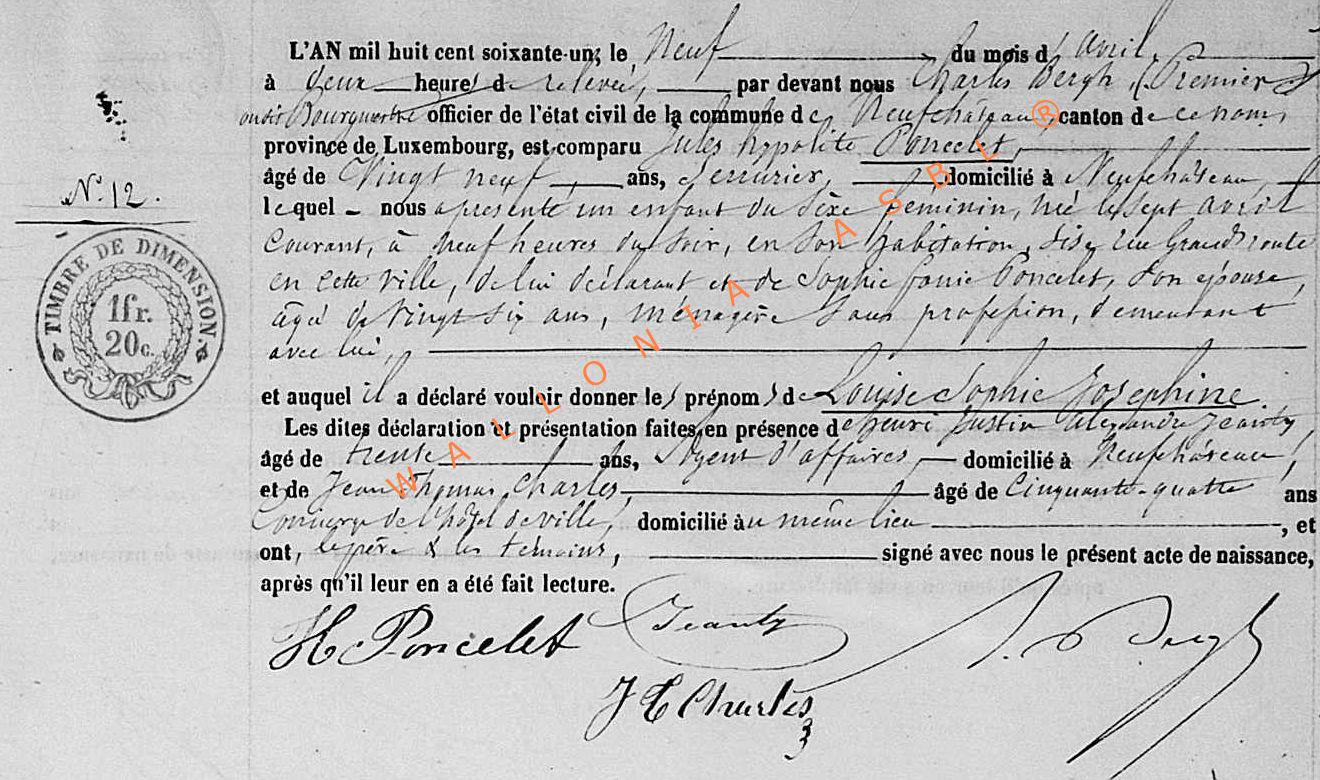 L'AN mil huit cent soixante-un, le Neuf du mois d'avril,
à deux heures de relevée, par devant nous Charles Bergh, Premier
Bourgmestre officier de l'état civil de la commune de Neufchâteau canton de ce nom,
province de Luxembourg, est comparu Jules hypolite Poncelet,
âgé de Vingt neuf ans, Serrurier, domicilié à Neufchâteau,
lequel nous a présenté un enfant du sèxe féminin, né le sept avril
courant, à neuf heures du soir, en son habitation, sise rue Grand route
en cette ville, de lui déclarant et de Sophie Poncelet, son épouse,
agée de vingt six ans, ménagère sans profession, demeurant
avec lui,
et auquel il a déclaré vouloir donner les prénoms de Louise Sophie Joséphine
Les dites déclaration et présentation faites en présence de henri Justin alexandre Jeanty,
âgé de trente ans, Agent d'affaires, domicilié à Neufchâteau,
et de Jean Thomas Charles, âgé de Cinquante-quatre ans
Concierge de l'hôtel de ville, domicilié au même lieu, et
ont, le père & les témoins, signé avec nous le présent acte de naissance,
après qu'il leur en a été fait lecture.
N. 12.
TIMBRE DE DIMENSION
1 fr.
20 c.
H Poncelet
Jeanty
J T Charles
Bergh
WALLONIA ASBL ®